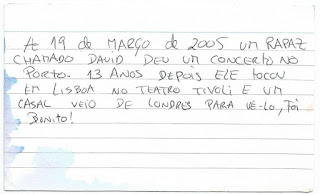 A 19 de MARÇO de 2005 UM RAPAZ
CHAMADO DAVID DEU UM CONCERTO NO
PORTO. 13 ANOS DEPOIS ELE TOCOU
EM LISBOA NO TEATRO TIVOLI E UM
CASAL VEIO DE LONDRES PARA VÊ-LO, FOI
BONITO!